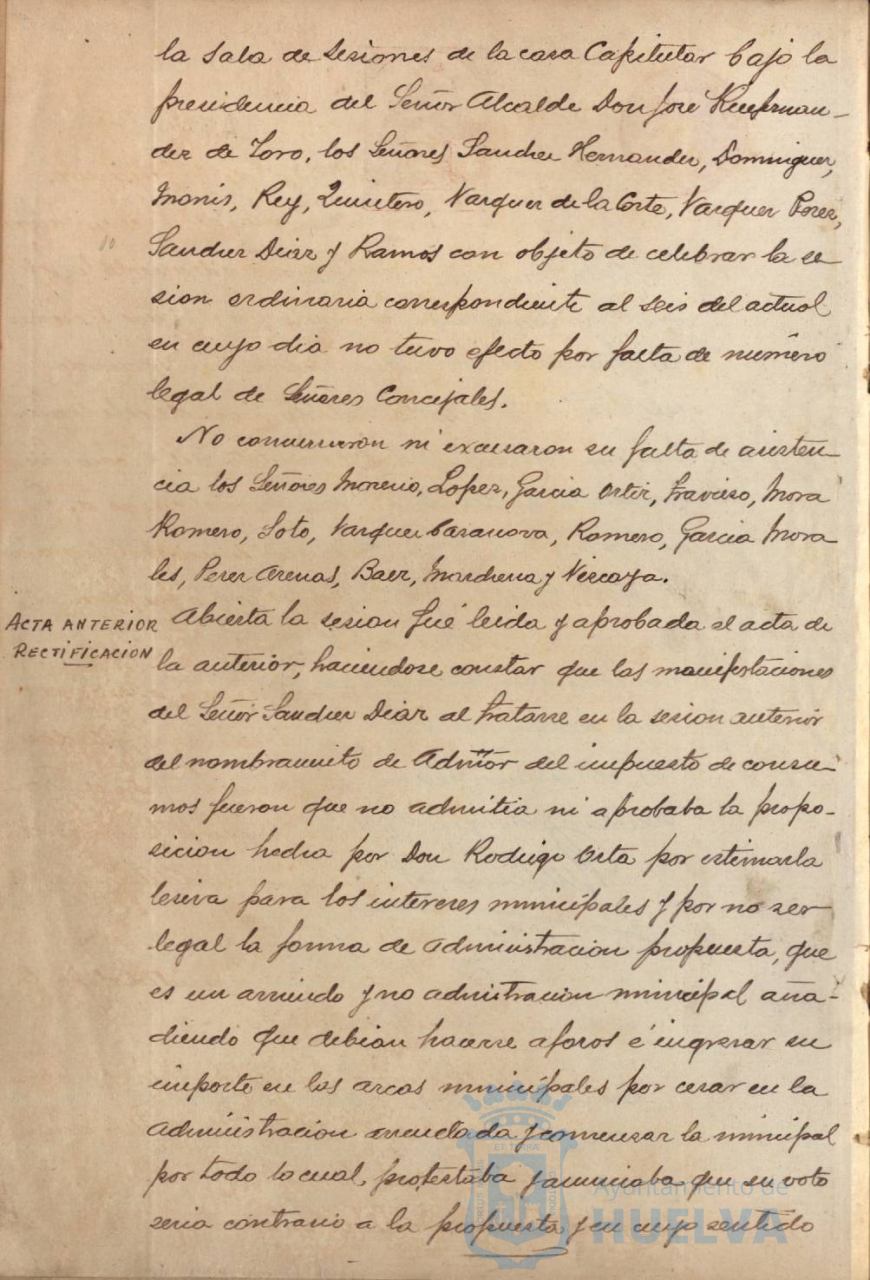 la Sala de Sesiones de la casa Capitular bajo la
presidencia del Señor Alcalde Don José
dez de Toro, los Señores Sanchez Hernandez, Dominguez,
Monis, Rey, Quintero, Vazquez de la Corte, Vazquez Perez,
Sanchez Diaz y Ramos con objeto de celebrar la se
sion ordinaria correspondiente al seis del actual
en cuyo dia no tuvo efecto por falta de numero
legal de Señores Concejales.
No concurrieron ni excusaron su falta de asisten
cia los Señores Moreno, Lopez, Garcia Ortiz, Mora
Romero, Soto, Vazquez Casanova, Romero, Garcia Mora
les, Perez Arenas, Baez, Marchena y Vizcaya.
ACTA ANTERIOR
RECTIFICACION
Abierta la sesion fué leida y aprobada el acta de
la anterior, haciendose constar que las manifestaciones
del Señor Sanchez Diaz al tratarse en la sesion anterior
del nombramiento de Admor del impuesto de consu-
mos fueron que no admitia ni aprobaba la propo-
sicion hecha por Don Rodrigo Orta por estimarla
lesiva para los intereses municipales y por no ser
legal la forma de administracion propuesta, que
es un arriendo y no admitracion municipal aña-
diendo que debian hacerse aforos é ingresar su
importe en las arcas municipales por cesar en la
administracion arrendada y comenzar la municipal
por todo lo cual, protestaba y anunciaba que su voto
seria contrario a la propuesta y en cuyo sentido
Ayuntamiento de
HUELVA